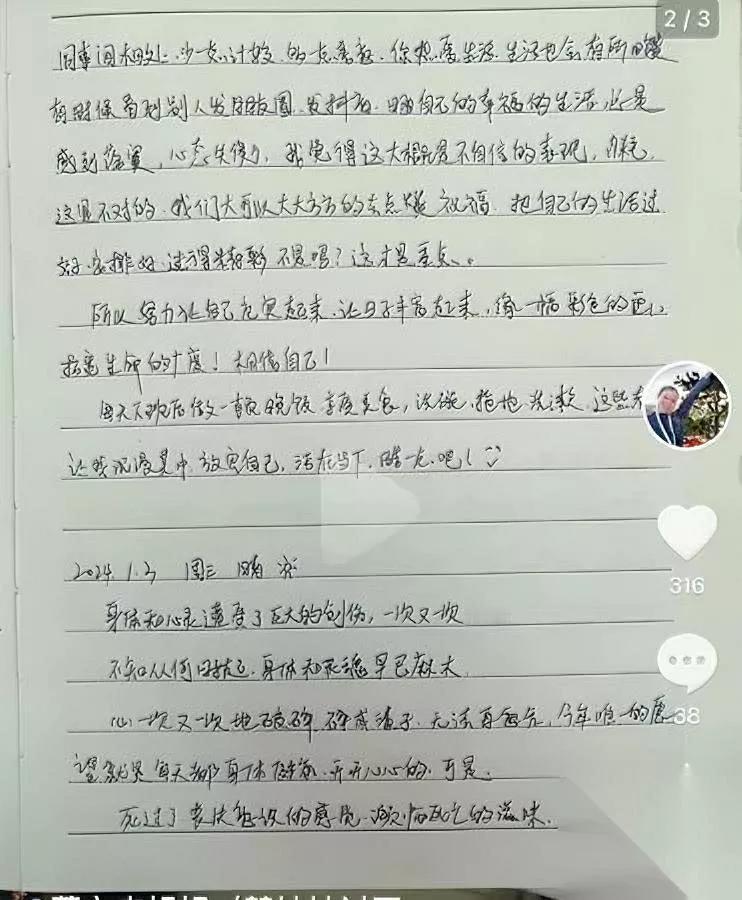 2/3
同事间相处,少一点计较,多一点善意,你热爱生活,生活也会有所回馈
有时候看到别人发朋友圈,发抖音,晒自己的幸福的生活,总是
感到落寞,心态失衡,我觉得这大概是不自信的表现,
这是不对的,我们大可以大大方方的去点赞祝福,把自己的生活过
好安排好,过得精彩不是吗?这才是重点。
所以努力让自己充实起来,让日子丰富起来,像一幅彩色的画,
拓宽生命的广度!相信自己!
每天下班后做一顿晚饭享受美食,洗碗,拖地,洗漱,这些
让我沉浸其中,放宽自己,活在当下,
2024.1.3 周三 晴
身体和心灵遭受了巨大的创伤,一次又一次
不知从何时起,身体和灵魂早已麻木
心一次又一次地破碎,碎成渣子,无法再复元,今年唯一的愿
望就是每天都身体健康,开开心心的,可是,
316
38